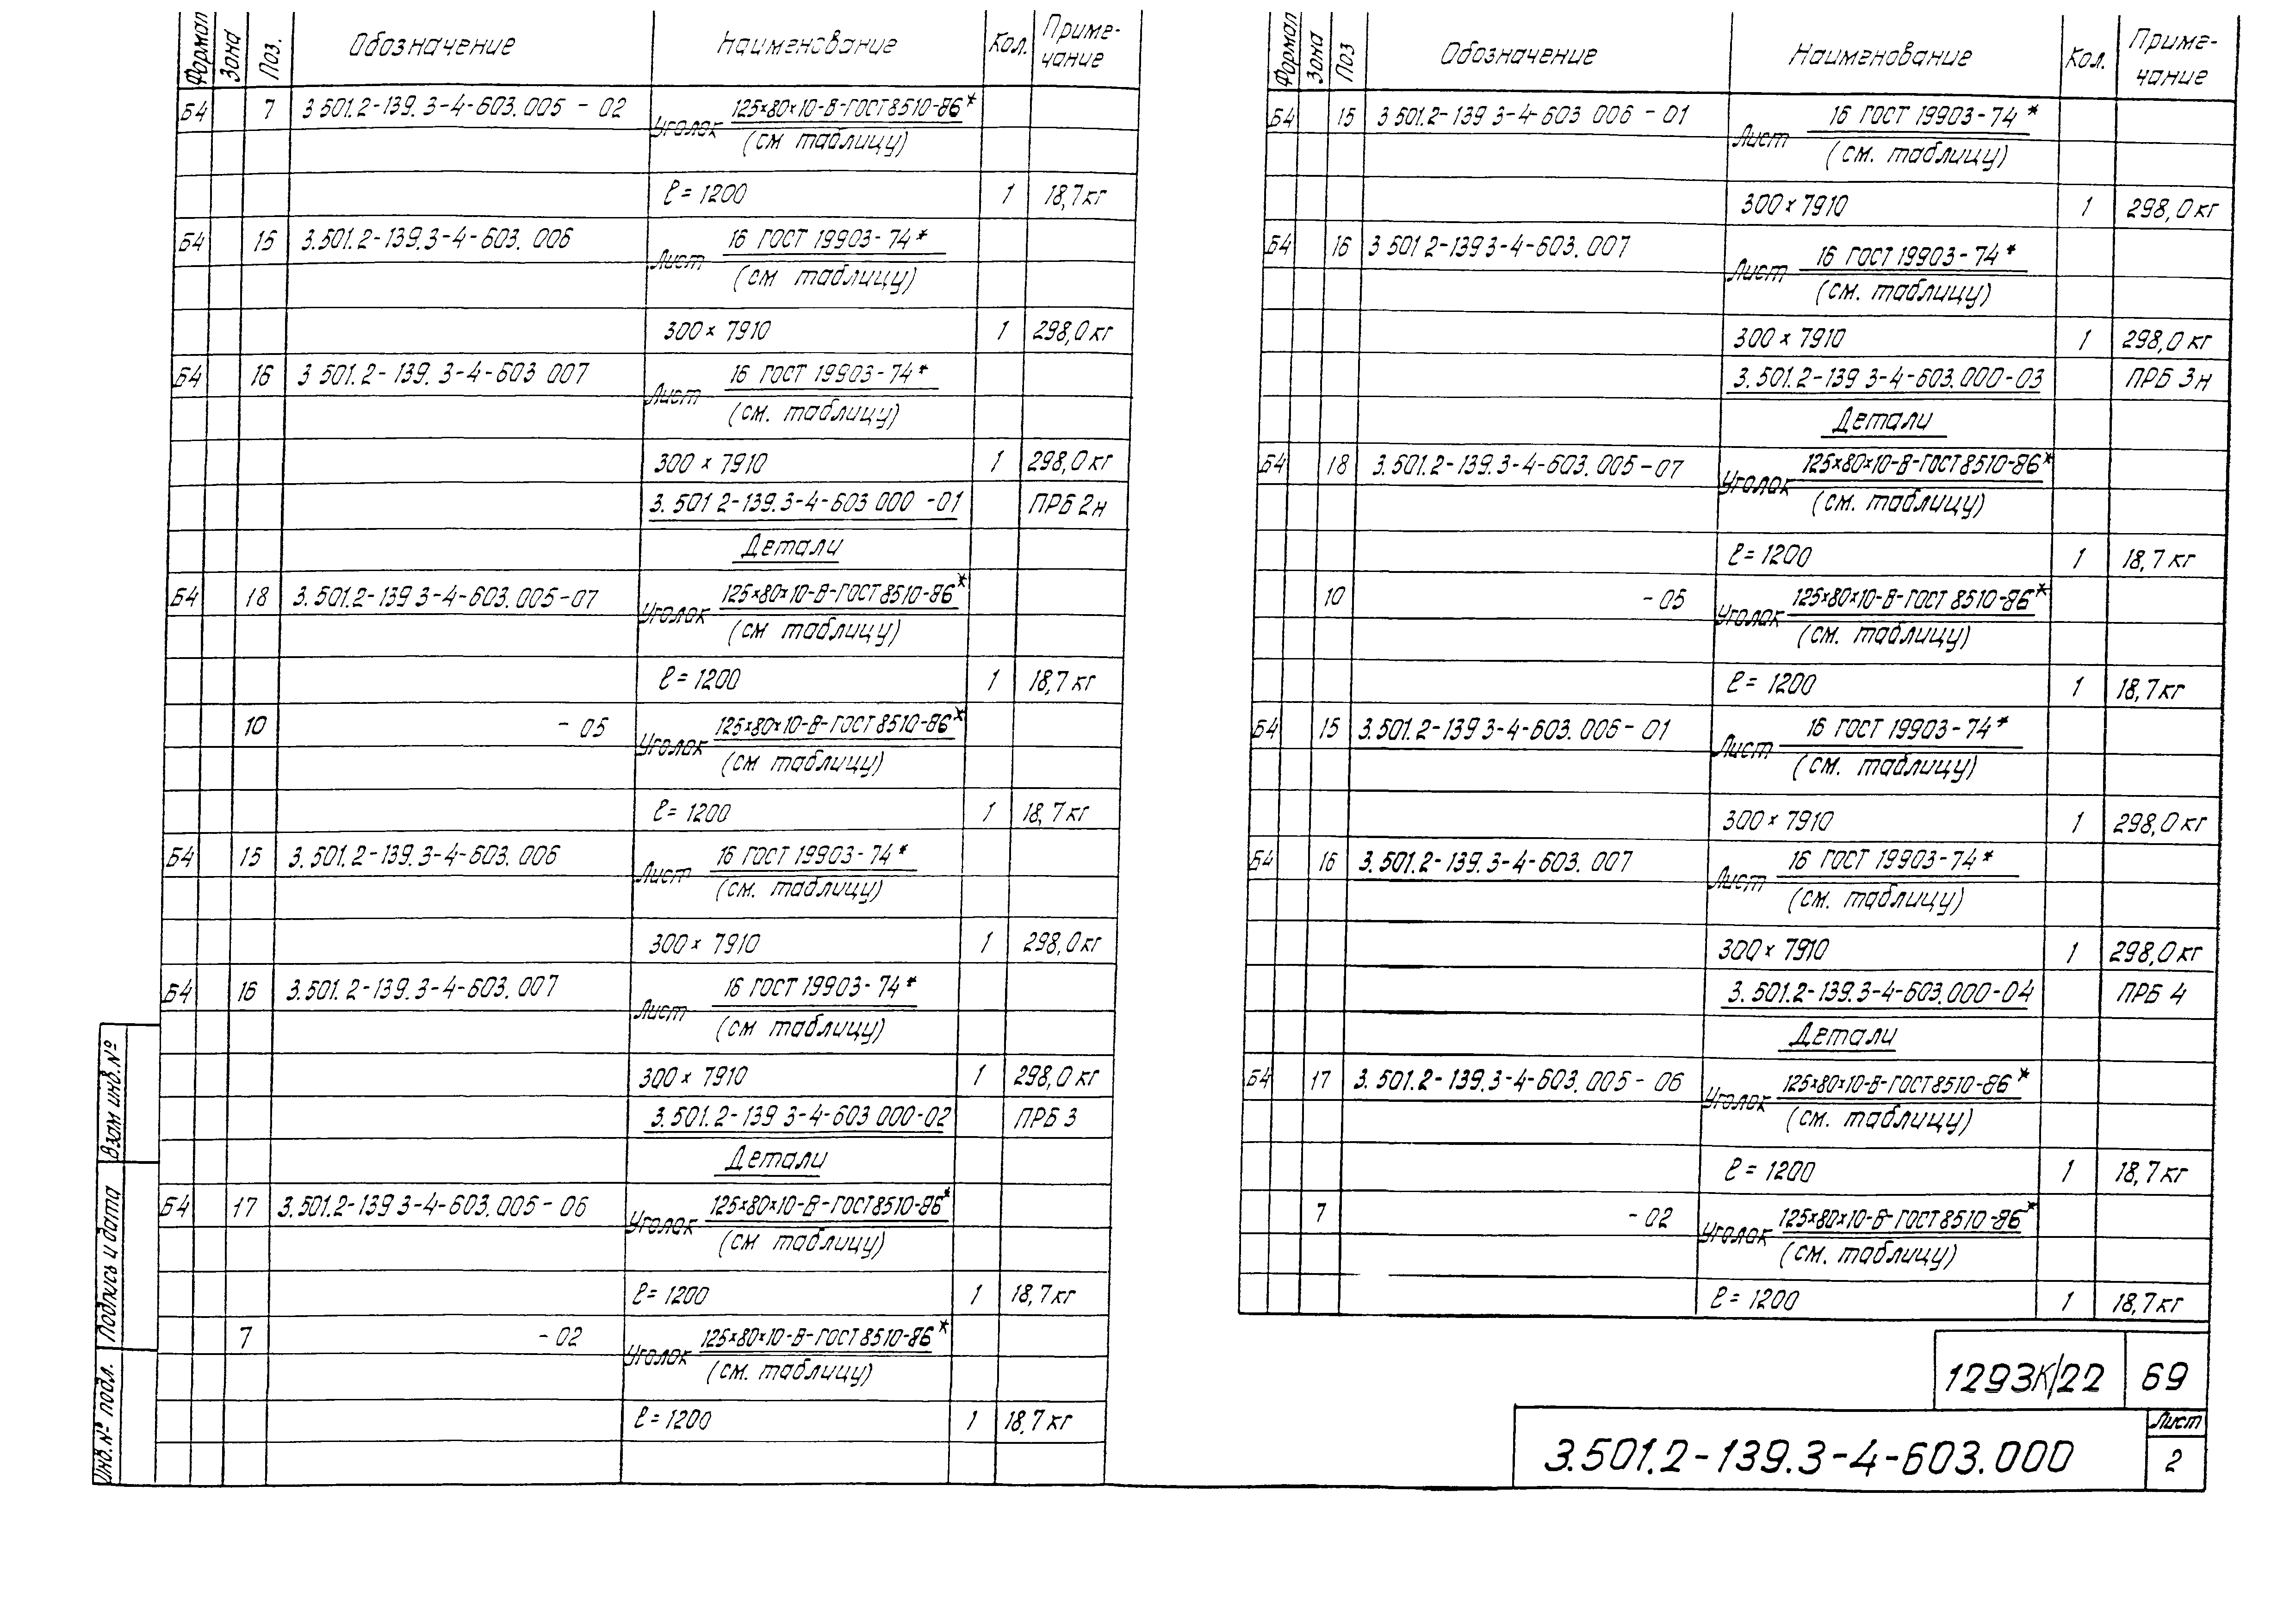 Формат Зона Поз. Обозначение Наименование Кол. Приме-
чание
Б4 7 3.501.2-139.3-4-603.005 - 02 Уголок 125×80×10-В-ГОСТ8510-86*
(см таблицу)
ℓ = 1200 1 18,7кг
Б4 15 3.501.2-139.3-4-603.006 Лист 16 ГОСТ 19903-74*
(см таблицу)
300 × 7910 1 298,0кг
Б4 16 3 501.2-139.3-4-603 007 Лист 16 ГОСТ 19903-74*
(см. таблицу)
300 × 7910 1 298,0кг
3.501 2-139.3-4-603 000 -01 ПРБ 2н
Детали
Б4 18 3.501.2-139 3-4-603.005-07 Уголок 125×80×10-В-ГОСТ8510-86*
(см таблицу)
ℓ = 1200 1 18,7кг
10 - 05 Уголок 125×80×10-В-ГОСТ8510-86*
(см таблицу)
ℓ = 1200 1 18,7кг
Б4 15 3.501.2-139.3-4-603.006 Лист 16 ГОСТ 19903-74*
(см. таблицу)
300 × 7910 1 298,0кг
Б4 16 3.501.2-139.3-4-603.007 Лист 16 ГОСТ 19903-74*
(см таблицу)
300 × 7910 1 298,0кг
3.501.2-139 3-4-603 000-02 ПРБ 3
Детали
Б4 17 3.501.2-139 3-4-603.005-06 Уголок 125×80×10-В-ГОСТ8510-86*
(см таблицу)
ℓ = 1200 1 18,7кг
7 - 02 Уголок 125×80×10-В-ГОСТ8510-86*
(см. таблицу)
ℓ = 1200 1 18,7кг
Взам инв.№
Подпись и дата
Инв.№ подл.
Формат Зона Поз Обозначение Наименование Кол. Приме-
чание
Б4 15 3.501.2-139 3-4-603 006 - 01 Лист 16 ГОСТ 19903-74*
(см. таблицу)
300 × 7910 1 298,0кг
Б4 16 3 501 2-139 3-4-603.007 Лист 16 ГОСТ 19903-74*
(см. таблицу)
300 × 7910 1 298,0кг
3.501.2-139 3-4-603.000-03 ПРБ 3н
Детали
Б4 18 3.501.2-139.3-4-603.005-07 Уголок 125×80×10-В-ГОСТ8510-86*
(см. таблицу)
ℓ = 1200 1 18,7кг
10 - 05 Уголок 125×80×10-В-ГОСТ 8510-86*
(см. таблицу)
ℓ = 1200 1 18,7кг
Б4 15 3.501.2-139 3-4-603.006-01 Лист 16 ГОСТ 19903-74*
(см. таблицу)
300 × 7910 1 298,0кг
Б4 16 3.501.2-139.3-4-603.007 Лист 16 ГОСТ 19903-74*
(см. таблицу)
300 × 7910 1 298,0кг
3.501.2-139.3-4-603.000-04 ПРБ 4
Детали
Б4 17 3.501.2-139.3-4-603.005-06 Уголок 125×80×10-В-ГОСТ8510-86*
(см. таблицу)
ℓ = 1200 1 18,7кг
7 - 02 Уголок 125×80×10-В-ГОСТ8510-86*
(см. таблицу)
ℓ = 1200 1 18,7кг
1293К/22 69
3.501.2-139.3-4-603.000 Лист
2